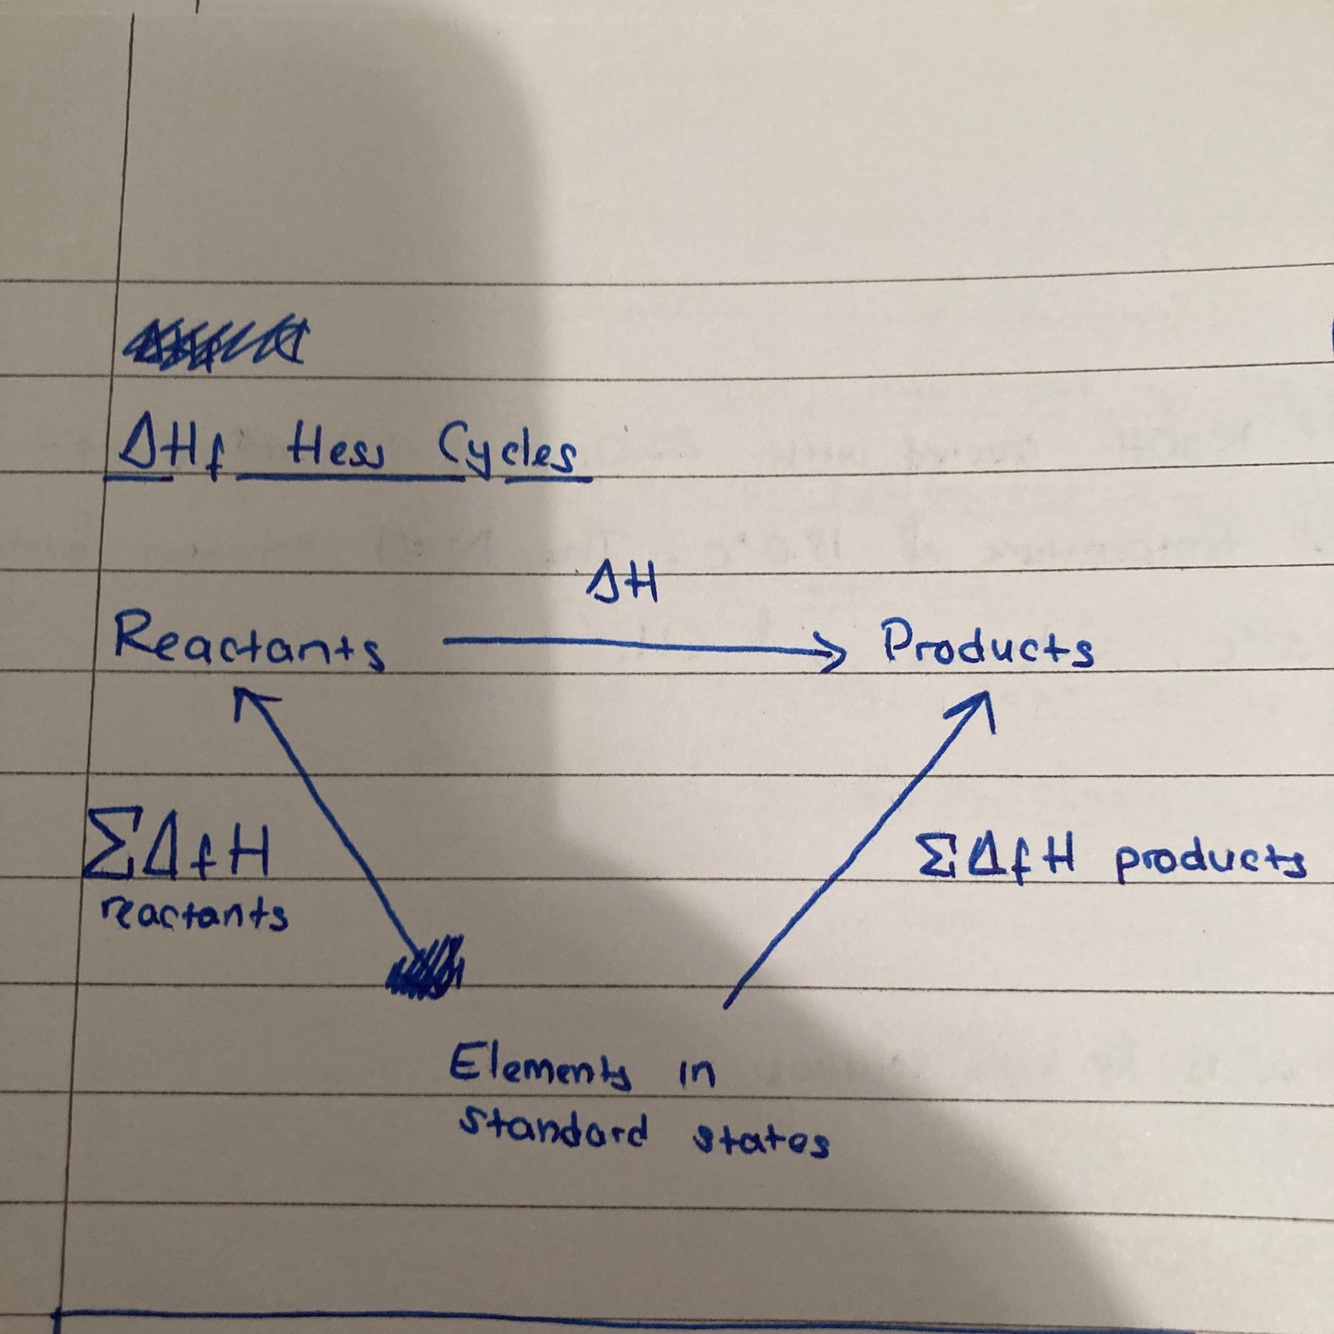 ΔHf Hess Cycles
ΔH
Reactants → Products
ΣΔfH
reactants
ΣΔfH products
Elements in
standard states